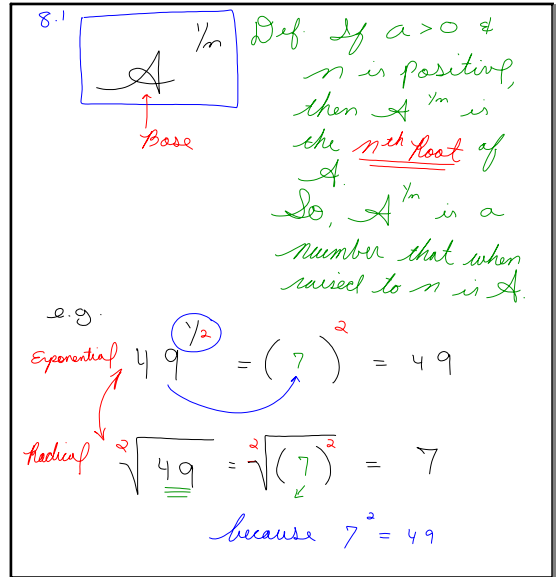 8.1
A^(1/n)
Base
Def. If a > 0 &
n is positive,
then A^(1/n) is
the nth Root of
A.
So, A^(1/n) is a
number that when
raised to n is A.
e.g.
Exponential 49^(1/2) = (7)^2 = 49
Radical ²√49 = ²√(7)^2 = 7
because 7^2 = 49